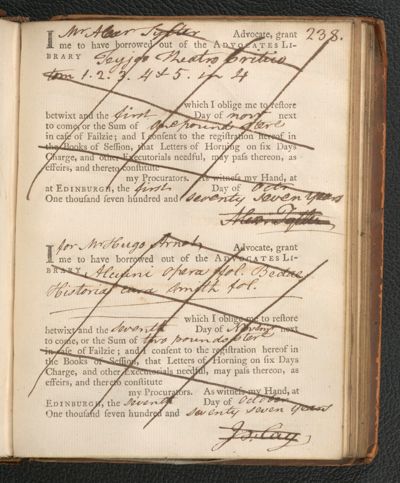 238.
I Mr Alexr Tytler Advocate, grant
me to have borrowed out of the ADVOCATES LI-
BRARY Feyjoo Theatro Critico
tom 1. 2. 3. 4 & 5. in 4
which I oblige me to reſtore
betwixt and the first Day of novr next
to come, or the Sum of one pound ster
in caſe of Failzie; and I conſent to the regiſtration hereof in
the Books of Seſſion, that Letters of Horning on ſix Days
Charge, and other Executorials needful, may paſs thereon, as
effeirs, and thereto conſtitute
my Procurators. As witneſs my Hand, at
at EDINBURGH, the first Day of Octr
One thouſand ſeven hundred and seventy seven years
Alexr Tytler
I for Mr Hugo Arnot Advocate, grant
me to have borrowed out of the ADVOCATES LI-
BRARY Alcuini opera fol. Bedae
Historia cura Smith fol.
which I oblige me to reſtore
betwixt and the seventh Day of Novemr next
to come, or the Sum of two pounds ster
in caſe of Failzie; and I conſent to the regiſtration hereof in
the Books of Seſſion, that Letters of Horning on ſix Days
Charge, and other Executorials needful, may paſs thereon, as
effeirs, and thereto conſtitute
my Procurators. As witneſs my Hand, at
EDINBURGH, the seventh Day of October
One thouſand ſeven hundred and seventy seven years